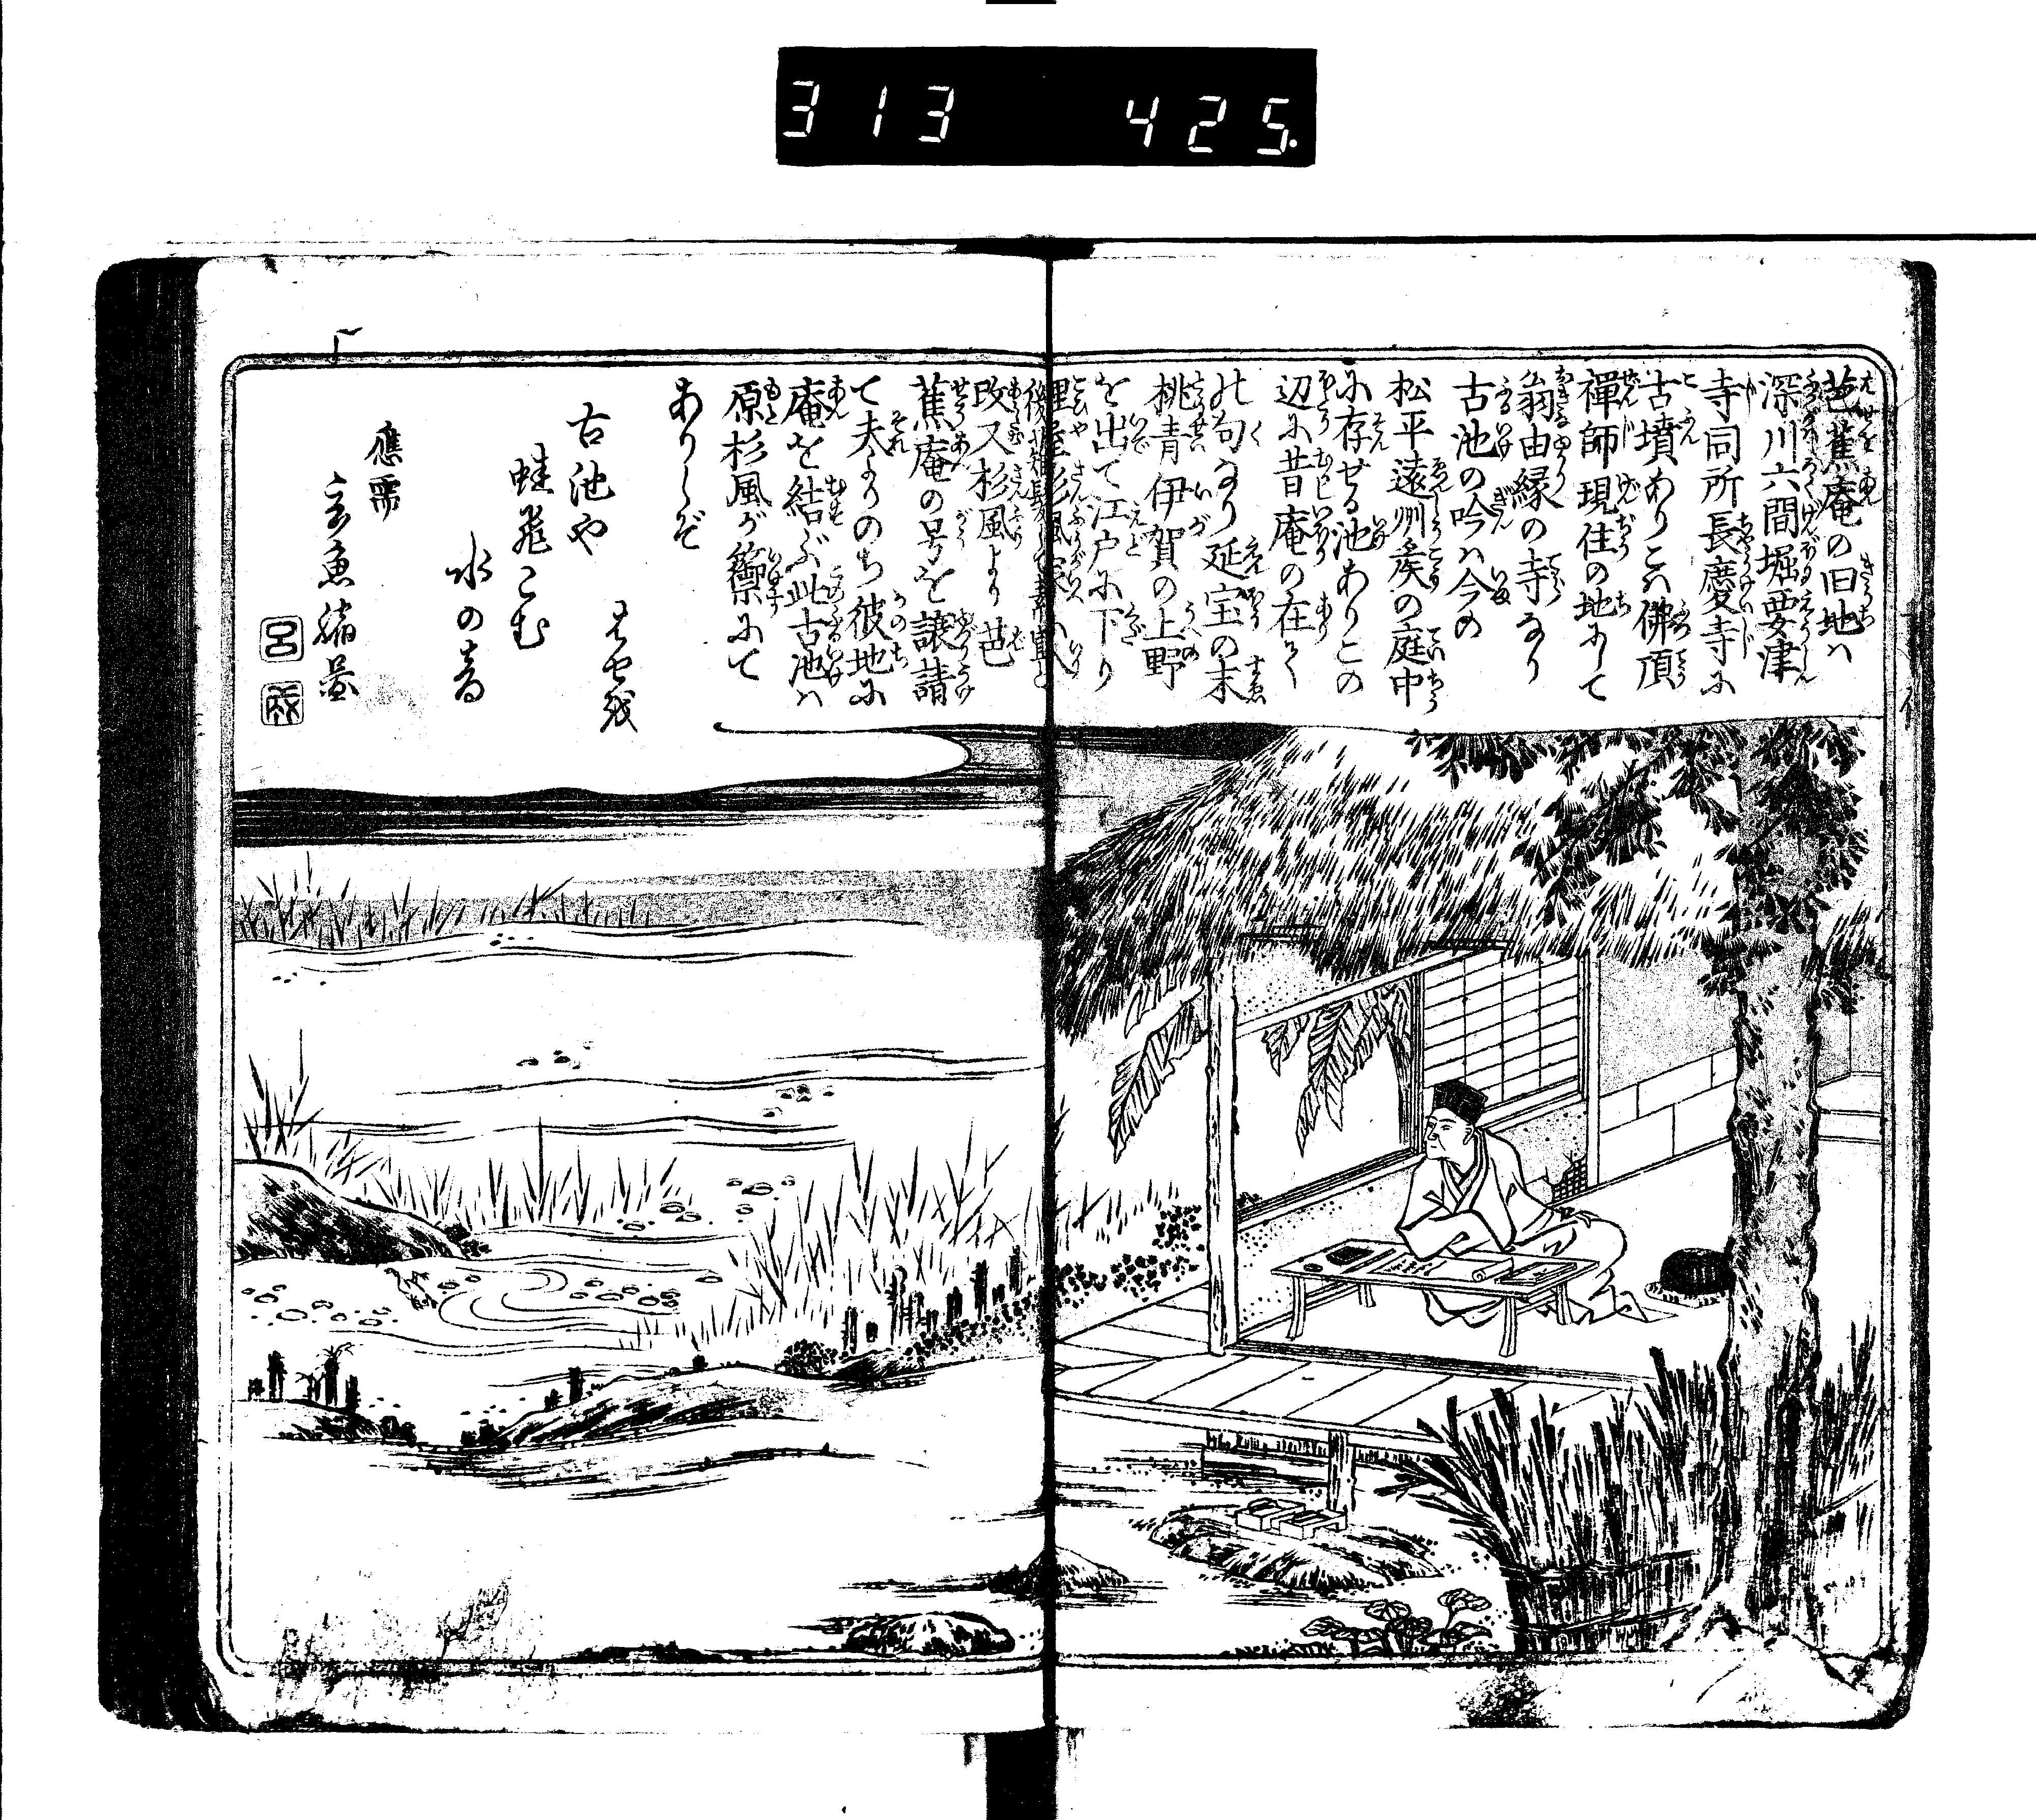 313 425.
芭蕉庵の旧地ハ
深川六間堀要津
寺同所長慶寺に
古墳ありこハ佛頂
禪師現住の地にして
翁由縁の寺なり
古池の吟ハ今の
松平遠州矦の庭中
に存せる池ありこの
辺に昔庵の在し
の句なり延宝の末
桃青伊賀の上野
を出て江戸に下り
改又杉風より芭
蕉庵の号を譲請
て夫よりのち彼地に
庵を結ぶ此古池ハ
原杉風が籞にて
ありしぞ
はせを
古池や
蛙飛こむ
水の音
應需
玄魚縮圖